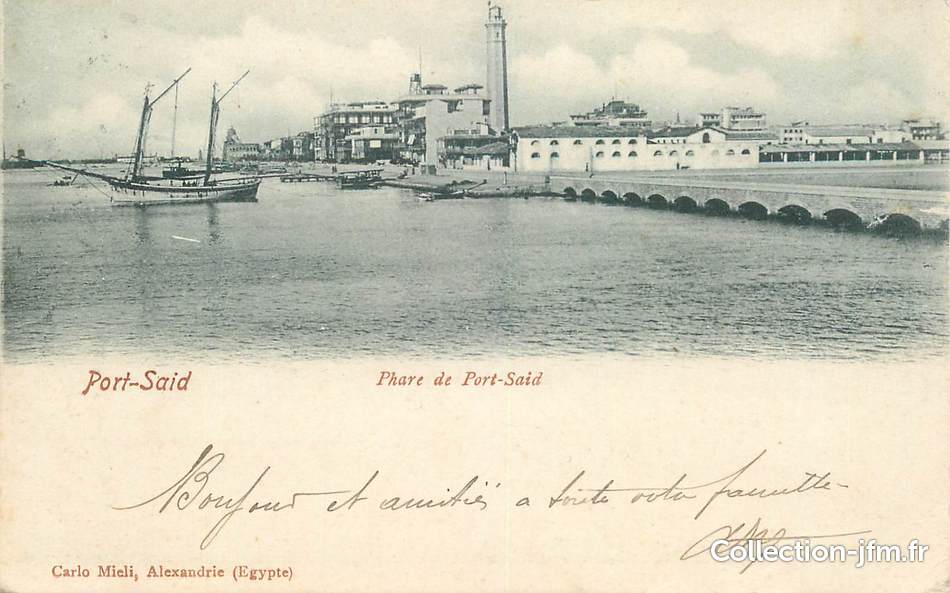 Port-Said
Phare de Port-Said
Bonjour et amitiés a toute votre famille
Collection-jfm.fr
Carlo Mieli, Alexandrie (Egypte)